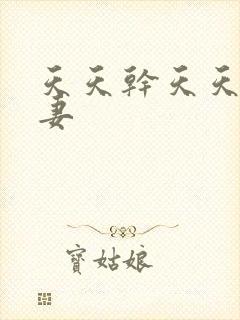 天天幹天天
妻
寶姑娘